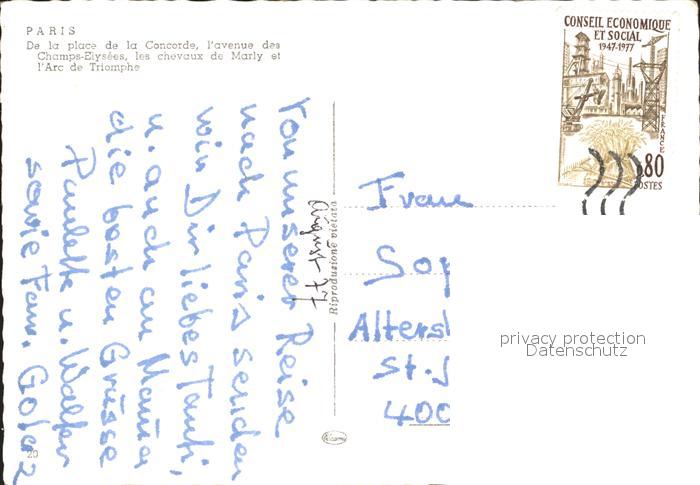 PARIS
De la place de la Concorde, l'avenue des
Champs-Elysées, les chevaux de Marly et
l'Arc de Triomphe
CONSEIL ECONOMIQUE
ET SOCIAL
1947-1977
FRANCE
0,80
POSTES
Von unserer Reise
nach Paris senden
wir Dir liebes Tanti,
u. auch an Mama
die besten Grüsse
Paulette u. Walter
sowie Fam.
August 77
Riproduzione vietata
Frau
Sop
Altersh
St. J
400
privacy protection
Datenschutz
20